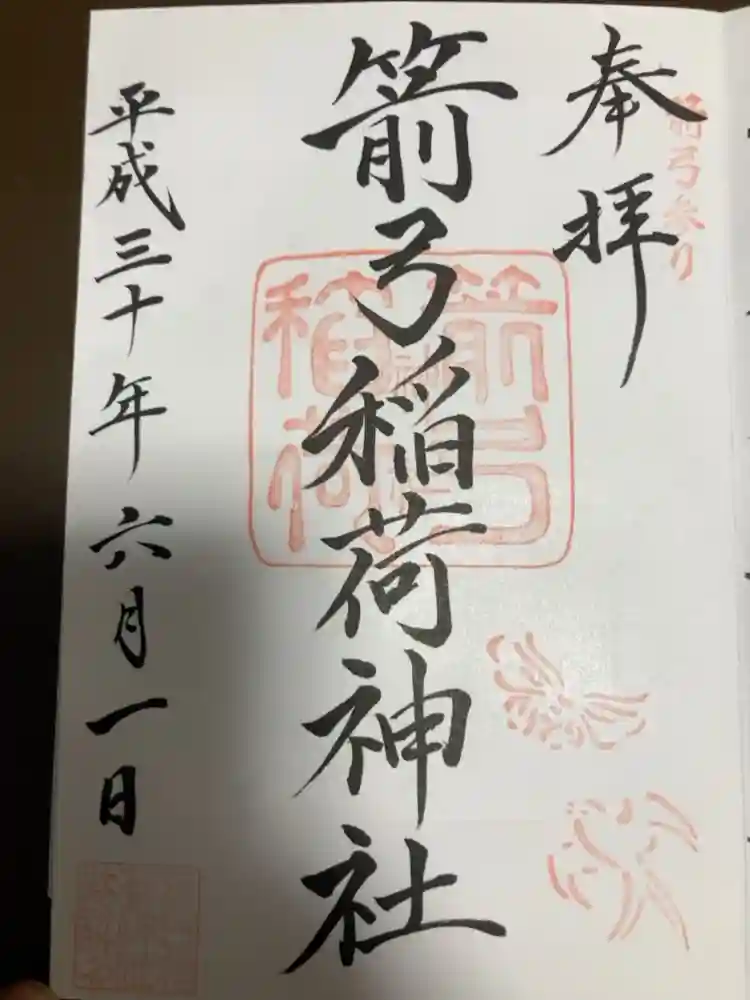 箭弓参り
奉拝
箭弓稲荷神社
箭弓
稲荷
平成三十年六月一日